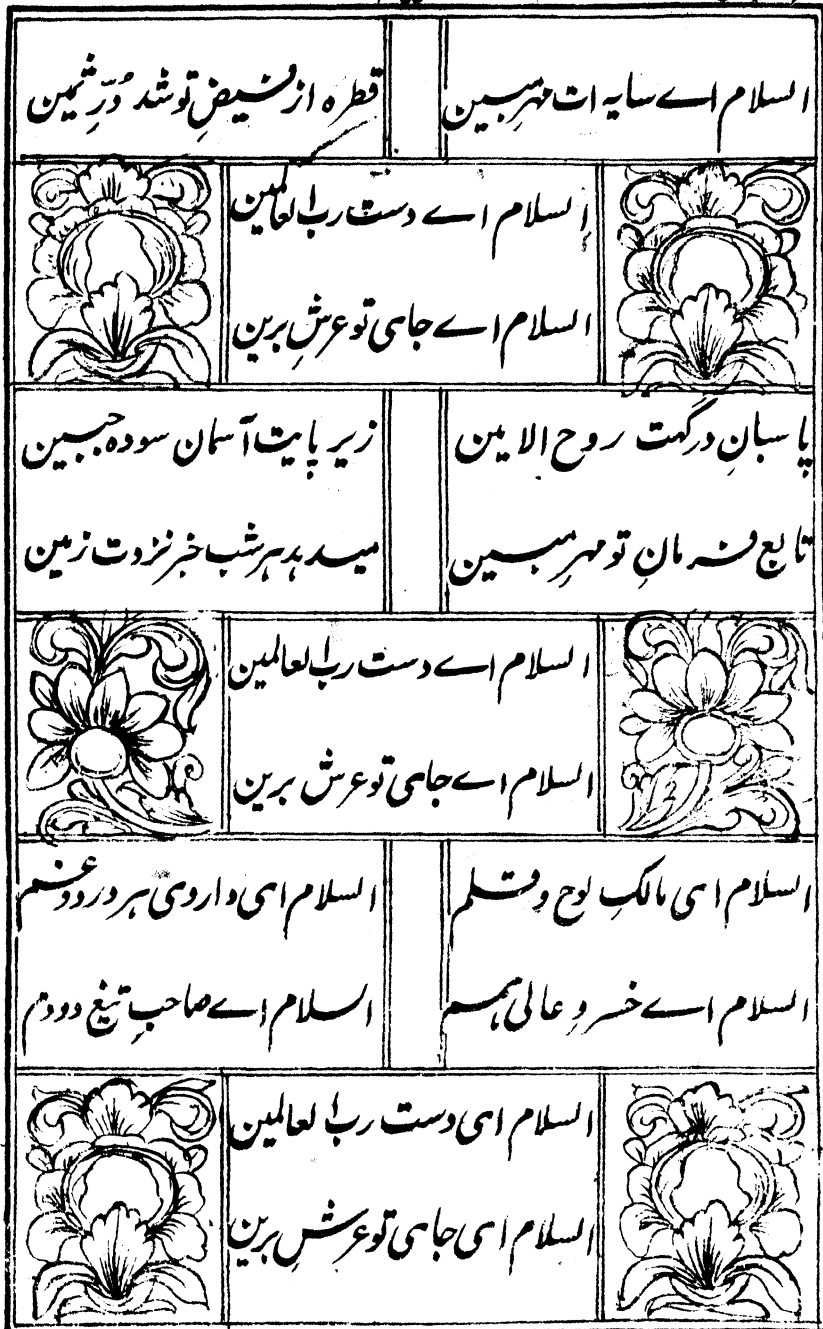 السلام اے سایہ ات مہرِ مبین
قطرہ از فیضِ تو شد دُرِّ ثمین
السلام اے دست رب العالمین
السلام اے جای تو عرشِ برین
پاسبانِ درگہت روح الامین
زیر پایت آسمان سودہ جبین
تابع فرمانِ تو مہرِ مبین
میدہد ہر شب خبر نزدت زمین
السلام اے دست رب العالمین
السلام اے جای تو عرش برین
السلام ای مالکِ لوح و قلم
السلام ای داروی ہر درد و غم
السلام اے خسروِ عالی ہمم
السلام اے صاحبِ تیغ دودم
السلام ای دست رب العالمین
السلام ای جای تو عرشِ برین